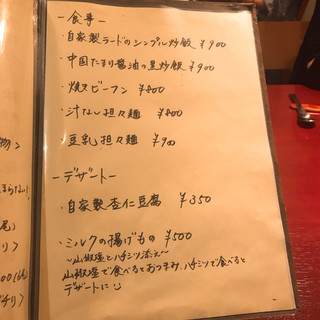 ー食事ー
・自家製ラードのシンプル炒飯 ¥900
・中国たまり醤油の黒炒飯 ¥900
・焼きビーフン ¥800
・汁なし担々麺 ¥800
・豆乳担々麺 ¥900
ーデザートー
・自家製杏仁豆腐 ¥350
・ミルクの揚げもの ¥500
〜山椒塩とハチミツ添え〜
山椒塩で食べるとおつまみ、ハチミツで食べると
デザートに
物〉